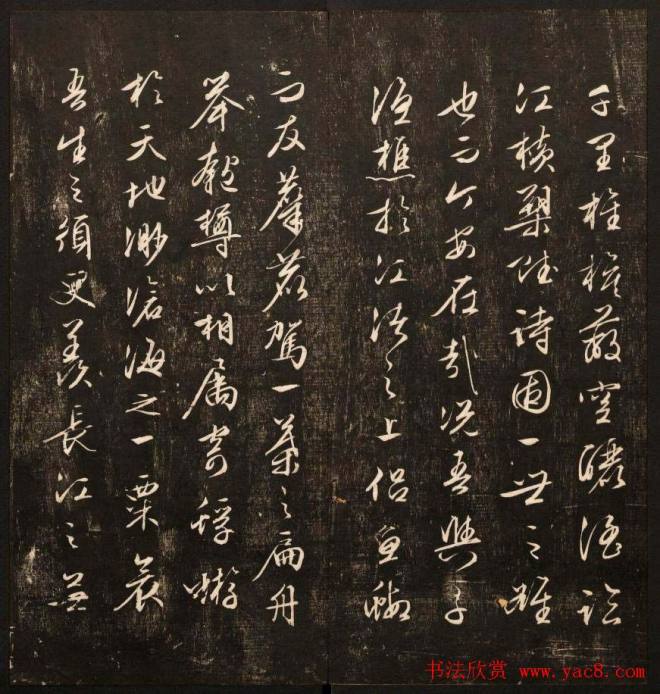 千里旌旗蔽空釃酒臨
江橫槊賦詩固一世之雄
也而今安在哉況吾與子
漁樵於江渚之上侶魚蝦
而友麋鹿駕一葉之扁舟
舉匏樽以相屬寄蜉蝣
於天地渺滄海之一粟哀
吾生之須臾羨長江之無
书法欣赏 www.yac8.com